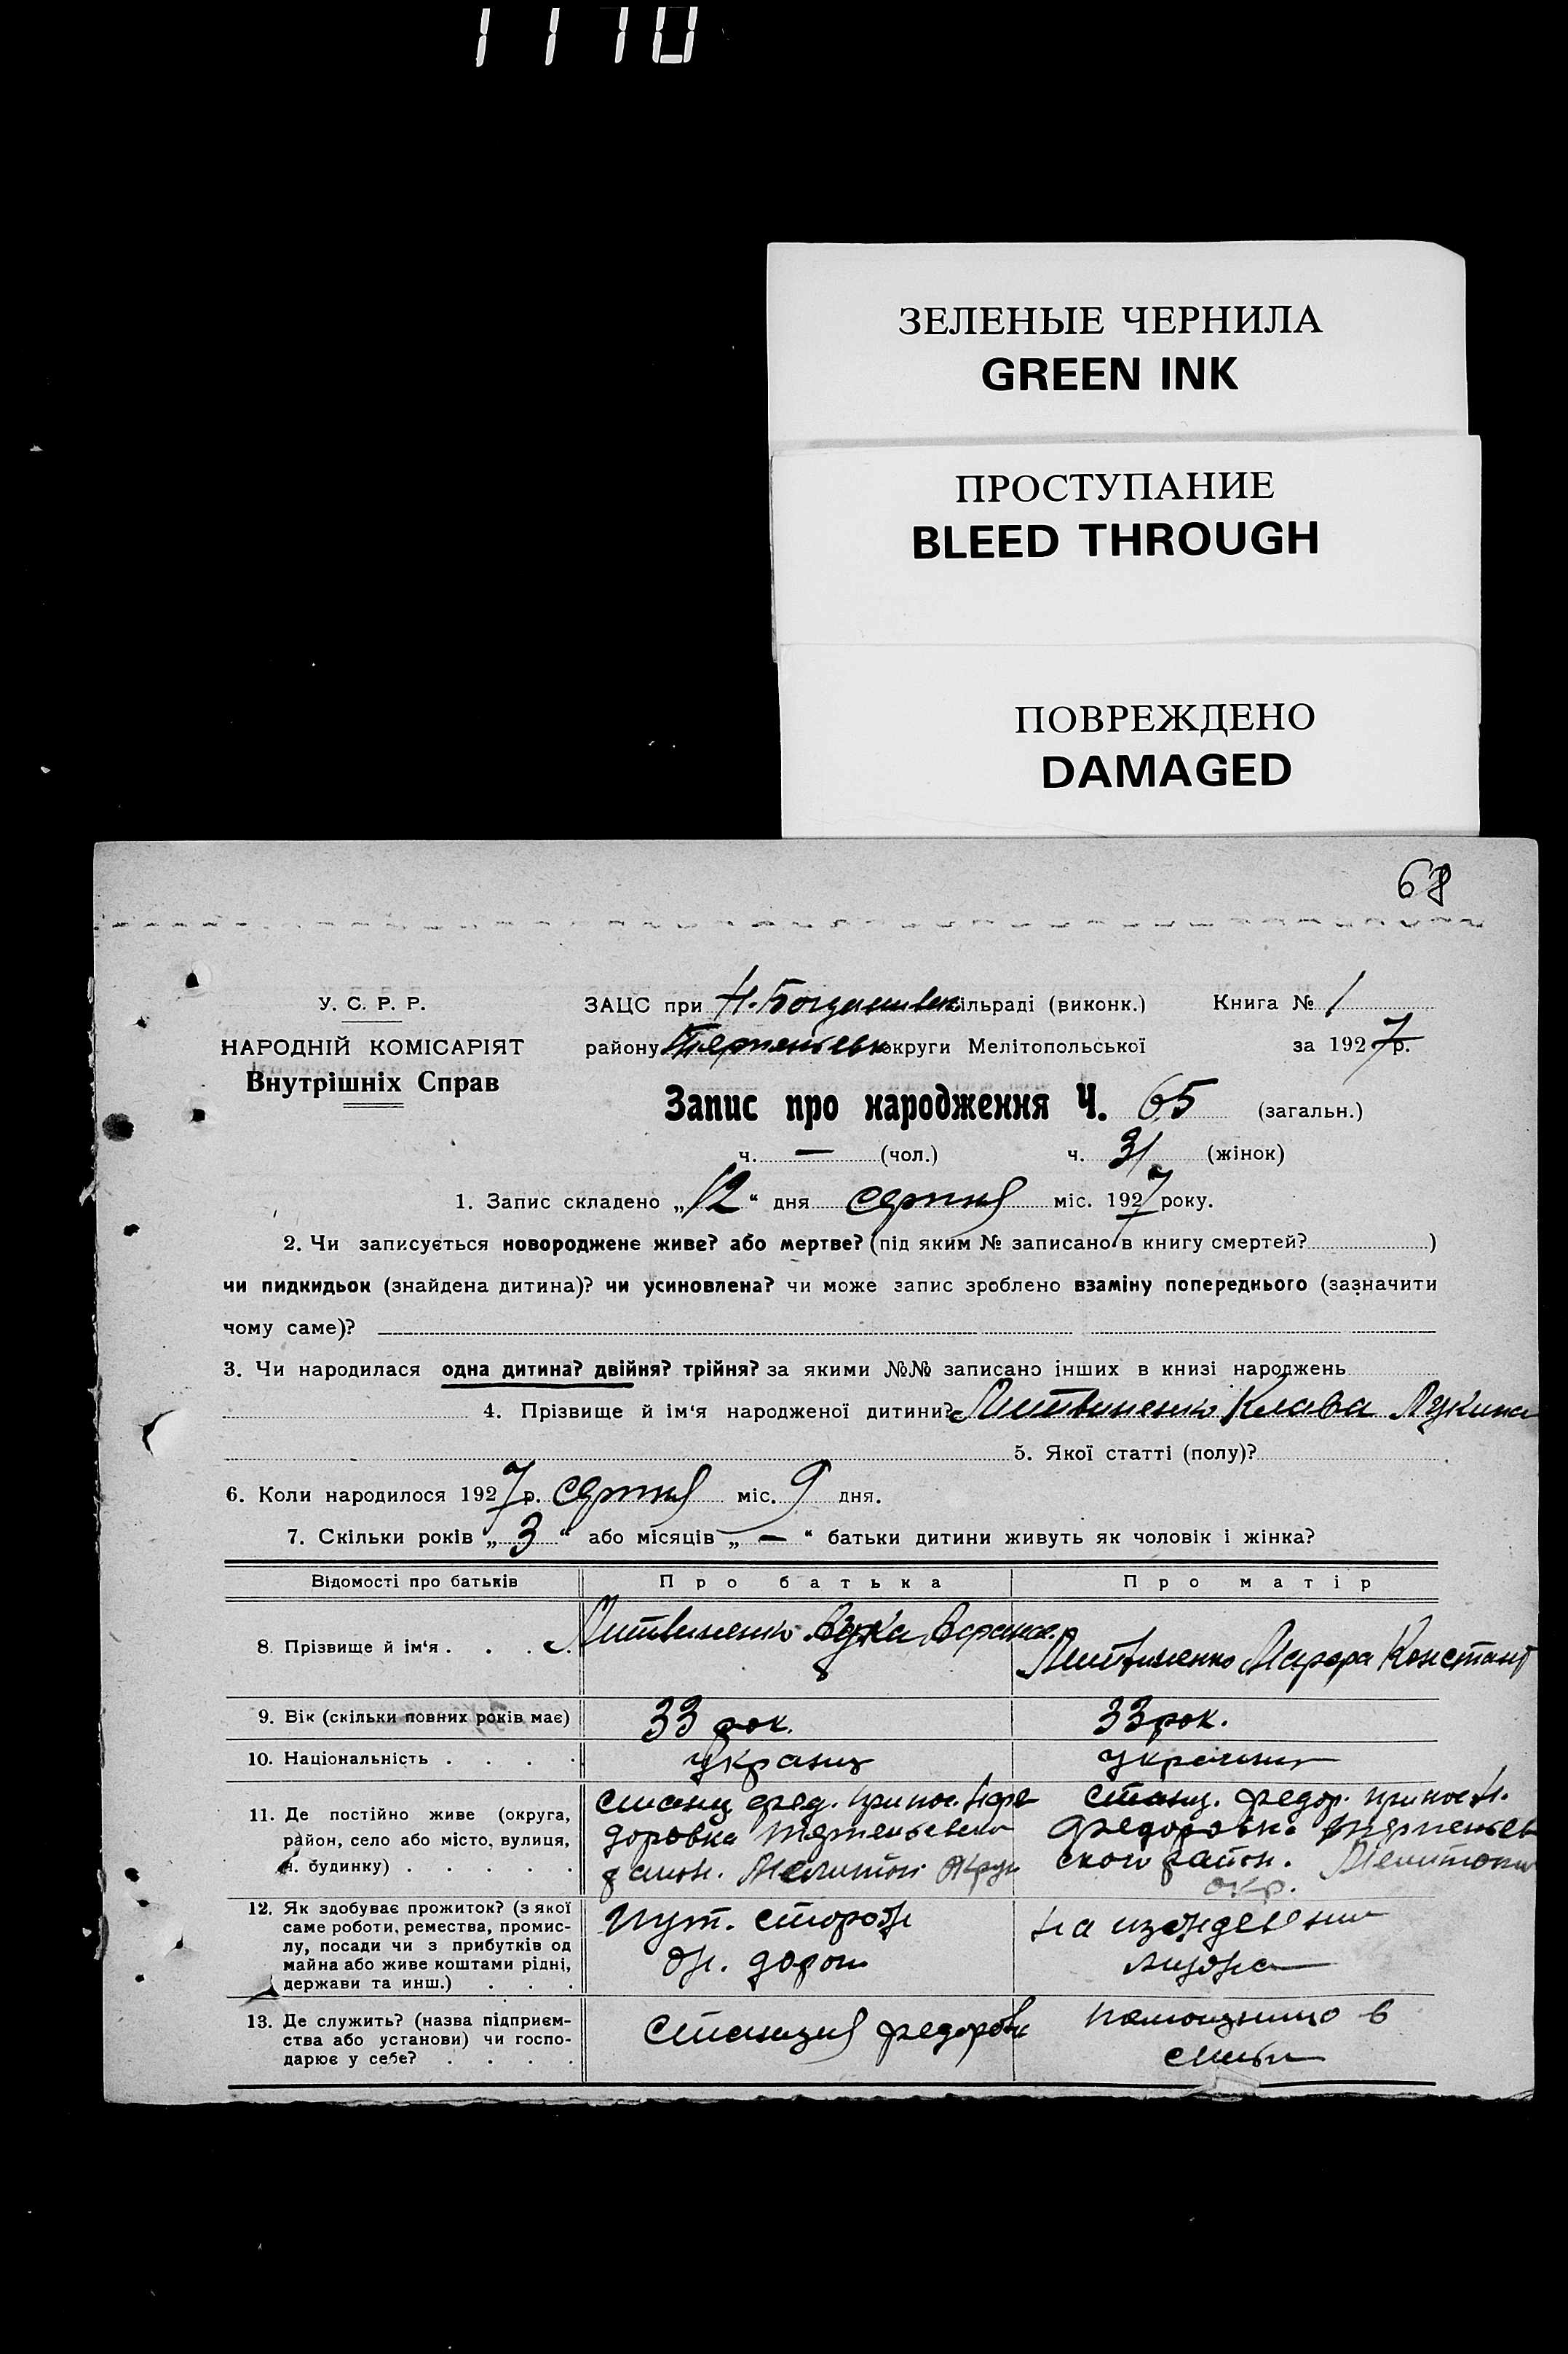 1110
ЗЕЛЕНЫЕ ЧЕРНИЛА
GREEN INK
ПРОСТУПАНИЕ
BLEED THROUGH
ПОВРЕЖДЕНО
DAMAGED
68
У. С. Р. Р.
НАРОДНІЙ КОМІСАРІЯТ
Внутрішніх Справ
ЗАЦС при Н. Богданивск сільраді (виконк.) Книга № 1
району Терпеньевск округи Мелітопольської за 1927 р.
Запис про народження Ч. 65 (загальн.)
ч. — (чол.) ч. 31 (жінок)
1. Запис складено „12“ дня серпня міс. 1927 року.
2. Чи записується новороджене живе? або мертве? (під яким № записано в книгу смертей? )
чи пидкидьок (знайдена дитина)? чи усиновлена? чи може запис зроблено взаміну попереднього (зазначити
чому саме)?
3. Чи народилася одна дитина? двійня? трійня? за якими №№ записано інших в книзі народжень
4. Прізвище й ім‘я народженої дитини? Литвиненко Клава Лукина
5. Якої статті (полу)?
6. Коли народилося 1927 р. серпня міс. 9 дня.
7. Скільки років „3“ або місяців „—“ батьки дитини живуть як чоловік і жінка?
Відомості про батьків Про батька Про матір
8. Прізвище й ім‘я . . . Литвиненко Литвиненко Констант
9. Вік (скільки повних років має) 33 рок. 33 рок.
10. Національність . . . . украиц
11. Де постійно живе (округа, район, село або місто, вулиця, н. будинку) . . . . .
станц фед. при пос. Н Фе
доровка Терпеньевско
район. Мелитоп округ
станц. федор. при пос Н.
Федоровка Терпеньев
ского район. Мелитопол
окр.
12. Як здобуває прожиток? (з якої саме роботи, ремества, промислу, посади чи з прибутків од майна або живе коштами рідні, держави та инш.) . . .
пут. сторож
ж. дорог
на иждевении
мужа
13. Де служить? (назва підприємства або установи) чи господарює у себе? . . . .
Станция Федоровк
помощница в